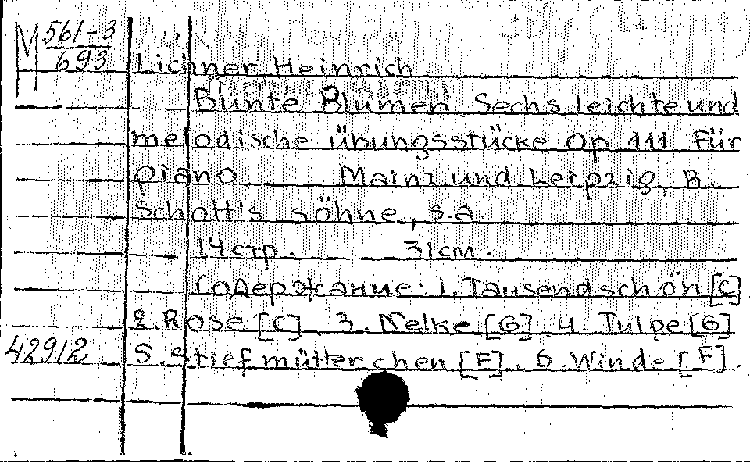 M 561-3
693
Lichner Heinrich
Bunte Blumen Sechs leichte und
melodische Übungsstücke Op. 111 Für
piano. Mainz und Leipzig, B.
Schott's söhne, s.a.
14 стр. 31 см.
Содержание: 1. Tausendschön [C]
2. Rose [C] 3. Nelke [G] 4. Tulpe [G]
42912 5. Stiefmütterchen [F]. 6. Winde [F].